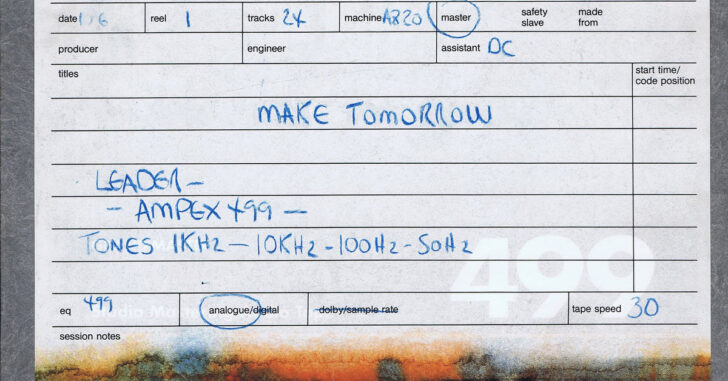 date 1 6 reel 1 tracks 24 machine A820 master safety slave made from
producer engineer assistant DC
titles start time/ code position
MAKE TOMORROW
LEADER –
– AMPEX 499 –
TONES 1KHz – 10KHz - 100Hz - 50Hz
499
eq 499 analogue/digital dolby/sample rate tape speed 30
session notes